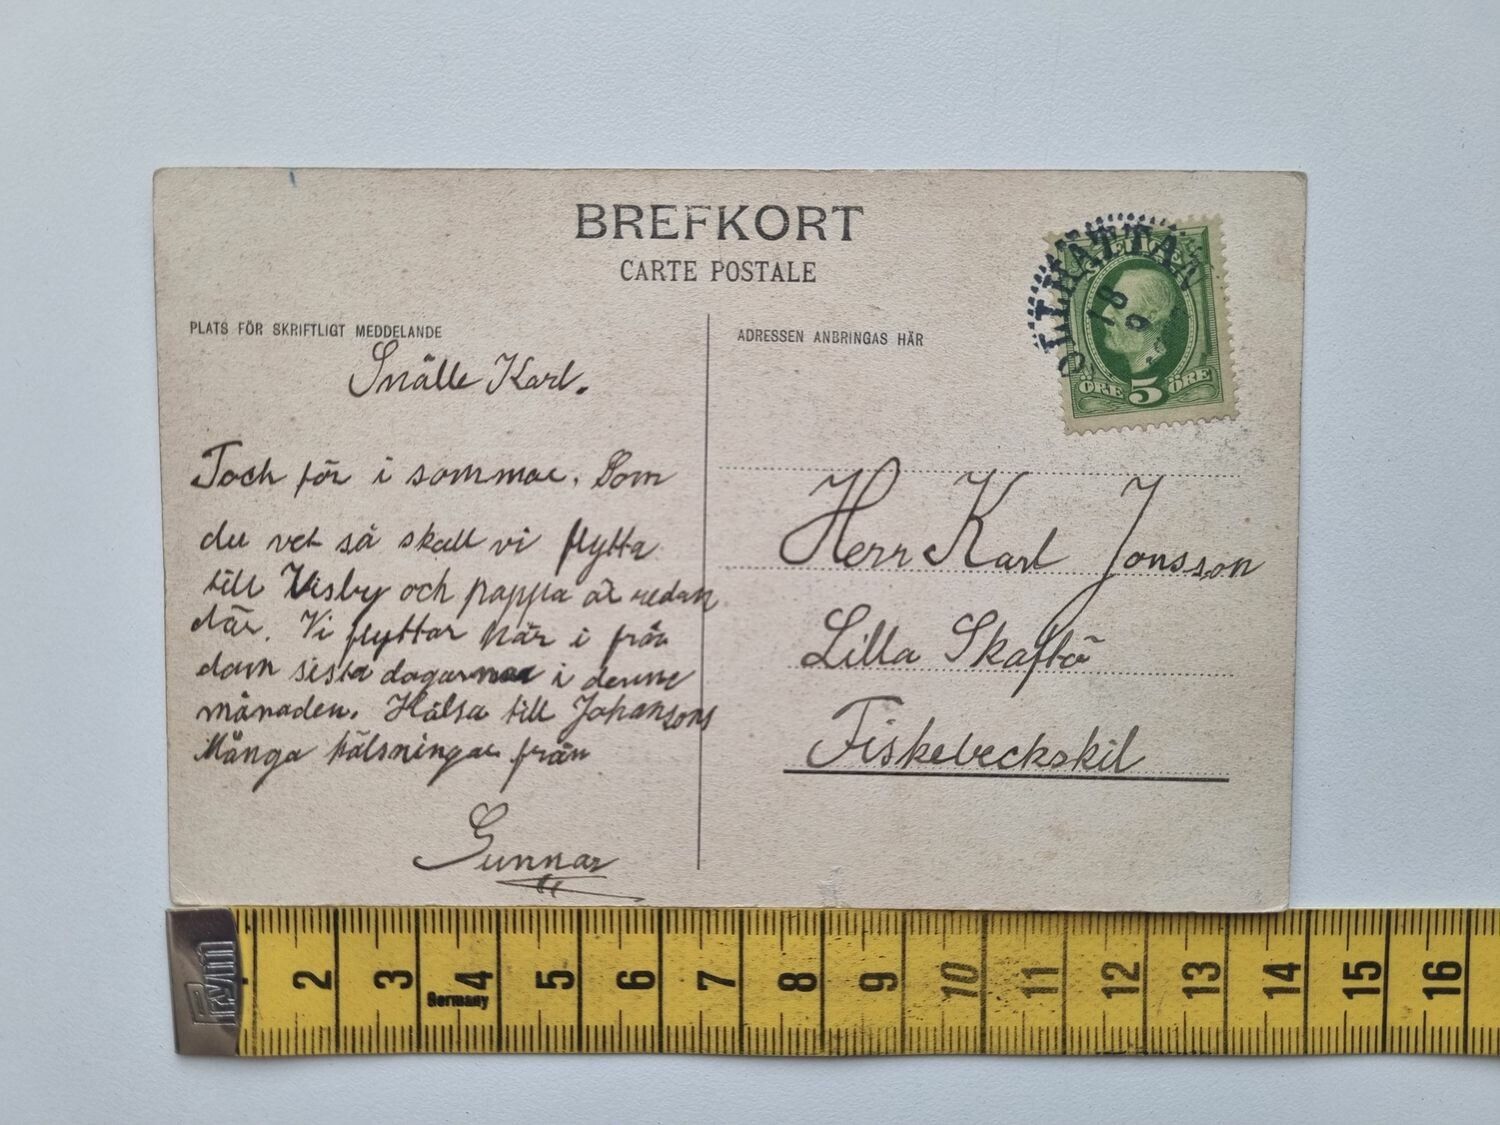 BREFKORT
CARTE POSTALE
PLATS FÖR SKRIFTLIGT MEDDELANDE
Snälle Karl.
Tack för i sommar. Som
du vet så skall vi flytta
till Visby och pappa är redan
där. Vi flyttar här i från
dom sista dagarna i denne
månaden. Hälsa till Johansons
Många hälsningar från
Gunnar
ADRESSEN ANBRINGAS HÄR
SVERIGE
ÖRE 5 ÖRE
OLLHÄTTAN
18
9
Herr Karl Jonsson
Lilla Skaftö
Fiskebeckskil
Prym
2 3 4 5 6 7 8 9 10 11 12 13 14 15 16
Germany